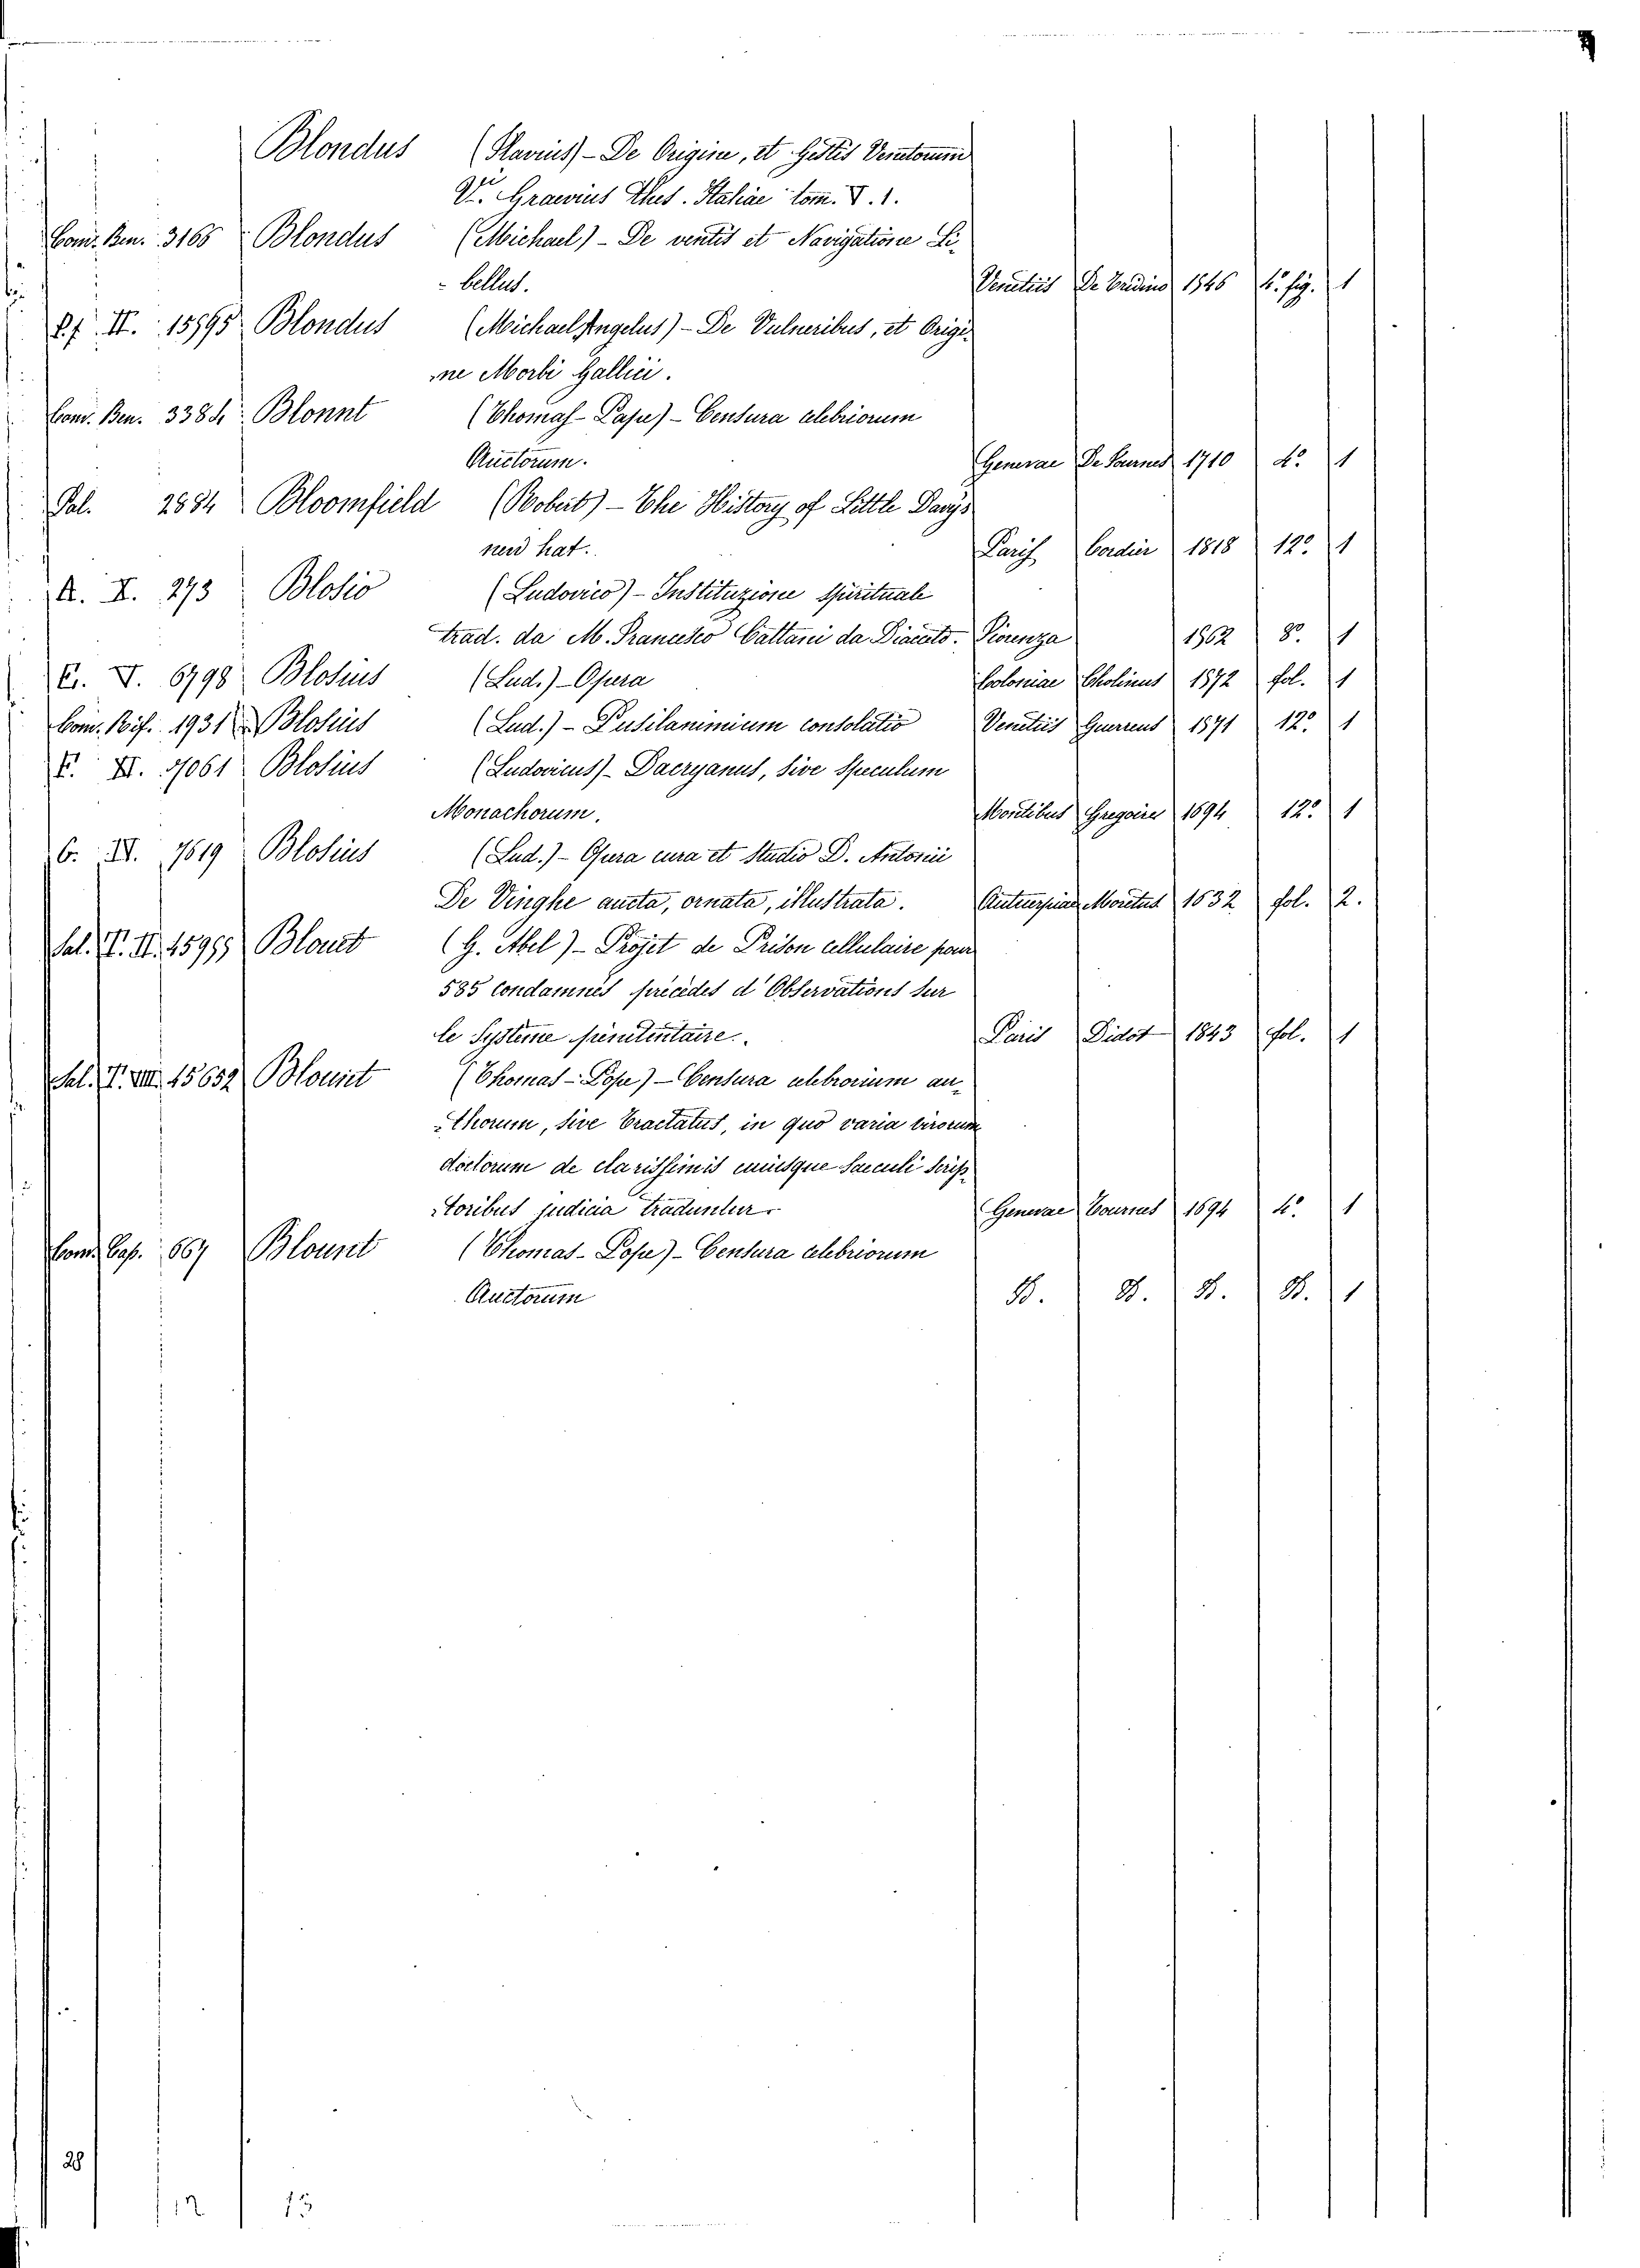 Blondus (Flavius) - De Origine, et Gestis Venetorum
V. Graevius Thes. Italiae tom. V. 1.
Com. Ben. 3166 Blondus (Michael) - De ventis et Navigatione Li-
-bellus. Venetiis De Tridino 1546 4.° fig. 1
II. 15595 Blondus (Michael Angelus) - De Vulneribus, et Origi-
ne Morbi Gallici.
Com. Ben. 3384 Blonnt (Thomas-Pape) - Censura celebriorum
Auctorum. Genevae De Tournes 1710 4.° 1
Pal. 2884 Bloomfield (Robert) - The History of Little Davy's
new hat. Paris Cordier 1818 12.° 1
A. X. 273 Blosio (Ludovico) - Instituzione Spirituale
trad. da M. Francesco Cattani da Diaceto. Fiorenza 1562 8.° 1
V. 6798 Blosius (Lud.) - Opera Coloniae Cholinus 1572 fol. 1
Com. Rif. 1931 Blosius (Lud.) - Pusilanimium consolatio Venetiis Guerreus 1571 12.° 1
Blosius (Ludovicus) - Dacryanus, sive Speculum
Monachorum. Montibus Gregoire 1694 12.° 1
7619 Blosius (Lud.) - Opera cura et studio D. Antonii
De Vinghe aucta, ornata, illustrata. Antuerpiae Moretus 1632 fol. 2.
Sal. T. II. 15955 Blouet (G. Abel) - Projet de Prison cellulaire pour
585 condamnés précédes d'Observations sur
le Système pénitentiaire. Paris Didot 1843 fol. 1
Sal. T. VIII. 15652 Blount (Thomas-Pope) - Censura celebrorium au-
-thorum, sive Tractatus, in quo varia virorum
doctorum de clarissimis cuiusque Saeculi Scrip-
-toribus judicia traduntur. Genevae Tournes 1694 4.° 1
Com. Cap. 667 Blount (Thomas-Pope) - Censura celebriorum
Auctorum B. B. B. B. 1
28
12 13